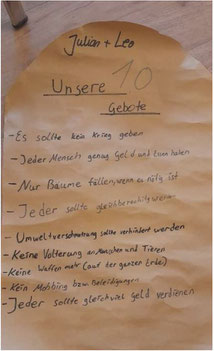 Julian + Leo
Unsere 10
Gebote
- Es sollte kein Krieg geben
- Jeder Mensch genug Geld und Essen haben
- Nur Bäume fällen, wenn es nötig ist
- Jeder sollte gleichberechtigt
- Umweltverschmutzung sollte verhindert werden
- Keine Volterung an Menschen und Tieren
- Keine Waffen mehr (auf der ganzer Erde)
- Kein Mobbing bzw. Beleidigungen
- Jeder sollte gleichviel geld verdienen